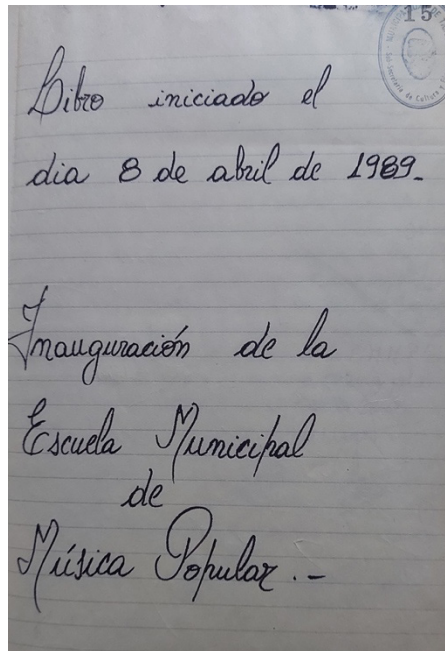 15
Libro iniciado el
dia 8 de abril de 1989.-
Inauguración de la
Escuela Municipal
de
Música Popular.-